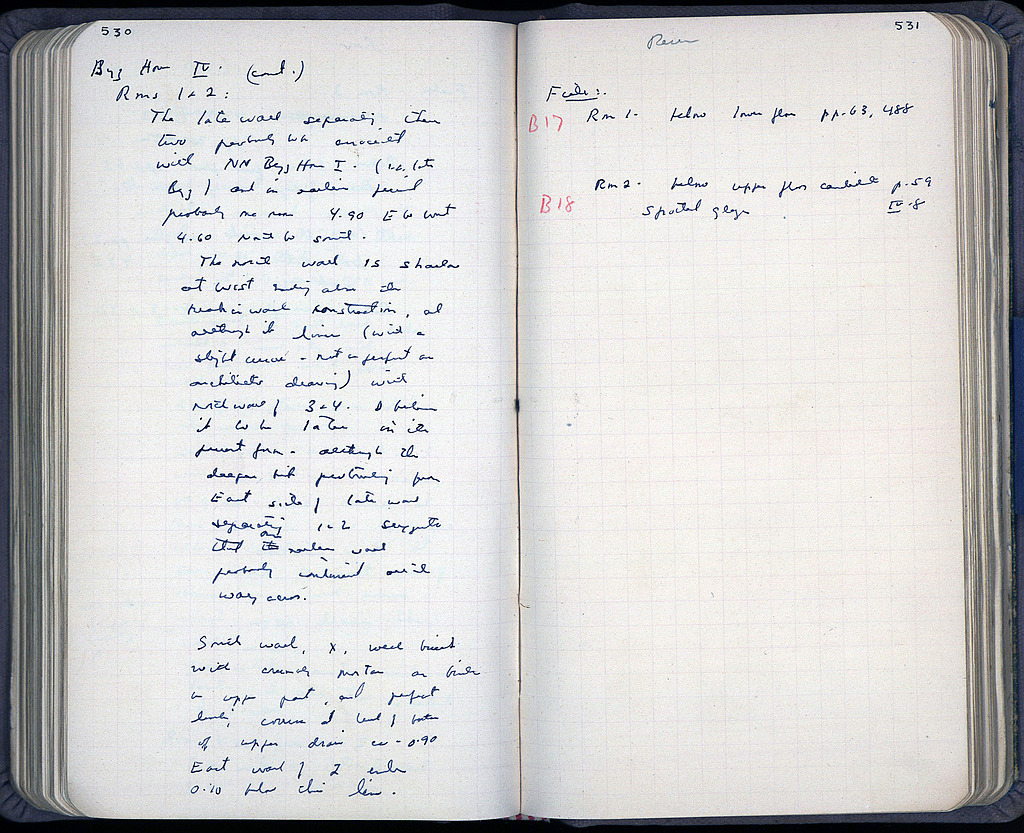 530
Byz House IV. (cont.)
Rms 1 & 2:
The late wall separating these
two probably to be associated
with NN Byz House I. (i.e. late
Byz) and in earlier period
probably one room 4.90 E to West
4.60 North to South.
The north wall is shallow
at west ending above the
in wall construction, and
although it lines (with a
slight curve - not as perfect as
architects drawing) with
north wall of 3 & 4. I believe
it to be later in its
present form - although the
deeper bit protruding from
East side of late wall
separating 1 & 2 suggests
that an earlier wall
probably continued all the
way across.
South wall, X, well built
with crumbly mortar as binder
in upper part, and perfect
courses at level of bottom
of upper drain ca - 0.90
East wall of 2 ends
0.10 below this line.
531
Finds:
B17 Rm 1. below lower floor pp. 63, 488
B18 Rm 2. below upper floor p. 59
IV.8